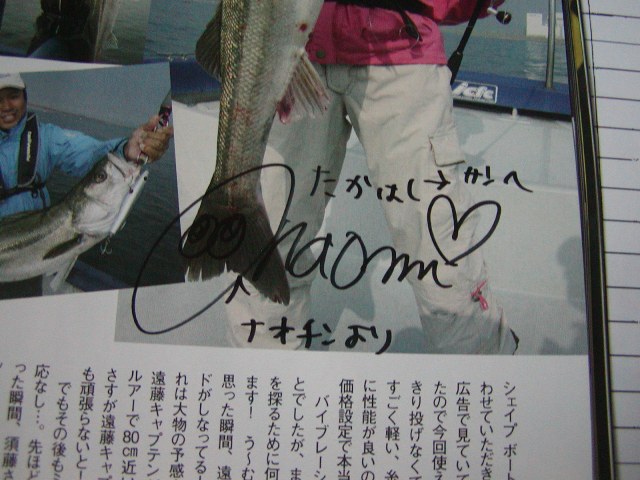 たかはし→サンへ
Naomi♡
ナオチンより
シェイプ ボート
わせていただき
広告で見ていて
たので今回使え
きり投げなくて
すごく軽い、糸
に性能が良いの
価格設定で本当
バイブレーシ
とでしたが、ま
を探るために何
ます！ う〜む
思った瞬間、遠
ドがしなってる！
れは大物の予感
遠藤キャプテン
ルアーで80cm近
さすが遠藤キャプ
も頑張らないと！
でもその後も
応なし…。先ほど
った瞬間、須藤さ